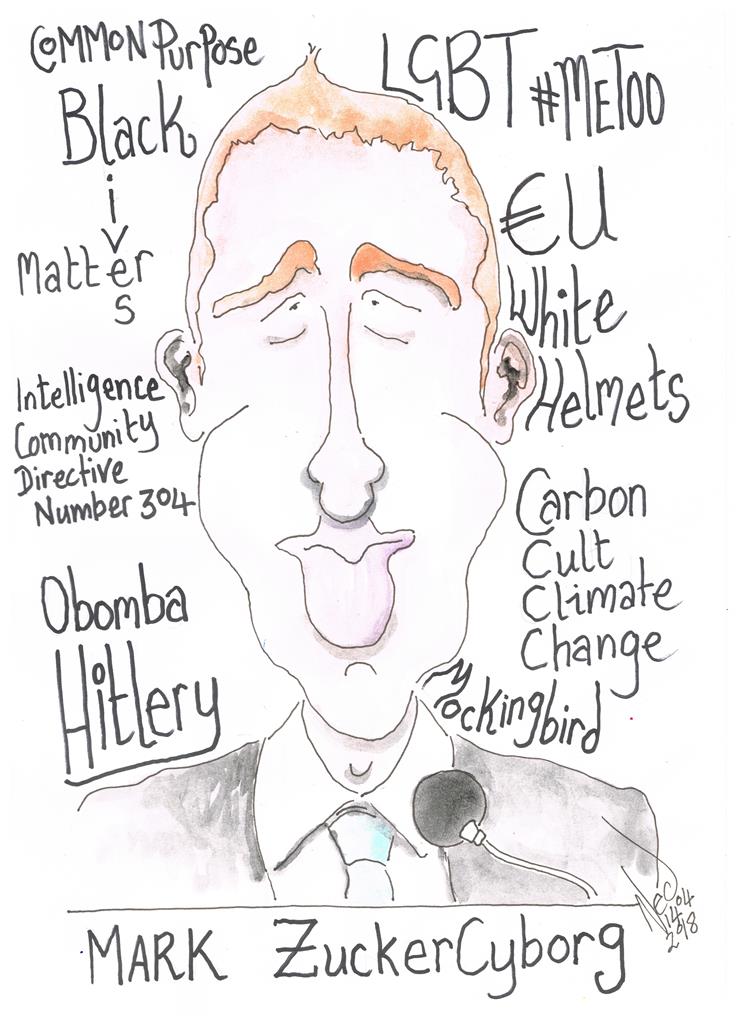 COMMON PurPose
Black
Lives
Matters
LGBT #METOO
€U
White
Helmets
Intelligence
Community
Directive
Number 304
Obomba
Hitlery
Carbon
Cult
Climate
Change
Mockingbird
04
14
2018
MARK ZuckerCyborg